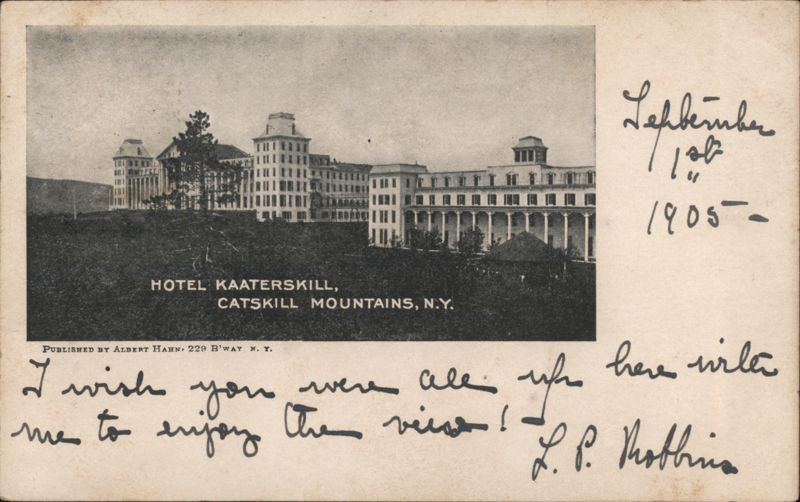 HOTEL KAATERSKILL,
CATSKILL MOUNTAINS, N.Y.
PUBLISHED BY ALBERT HAHN. 229 B'WAY N. Y.
September
1st
1905 -
I wish you were all up here with
me to enjoy the view! -
L. P. Robbins